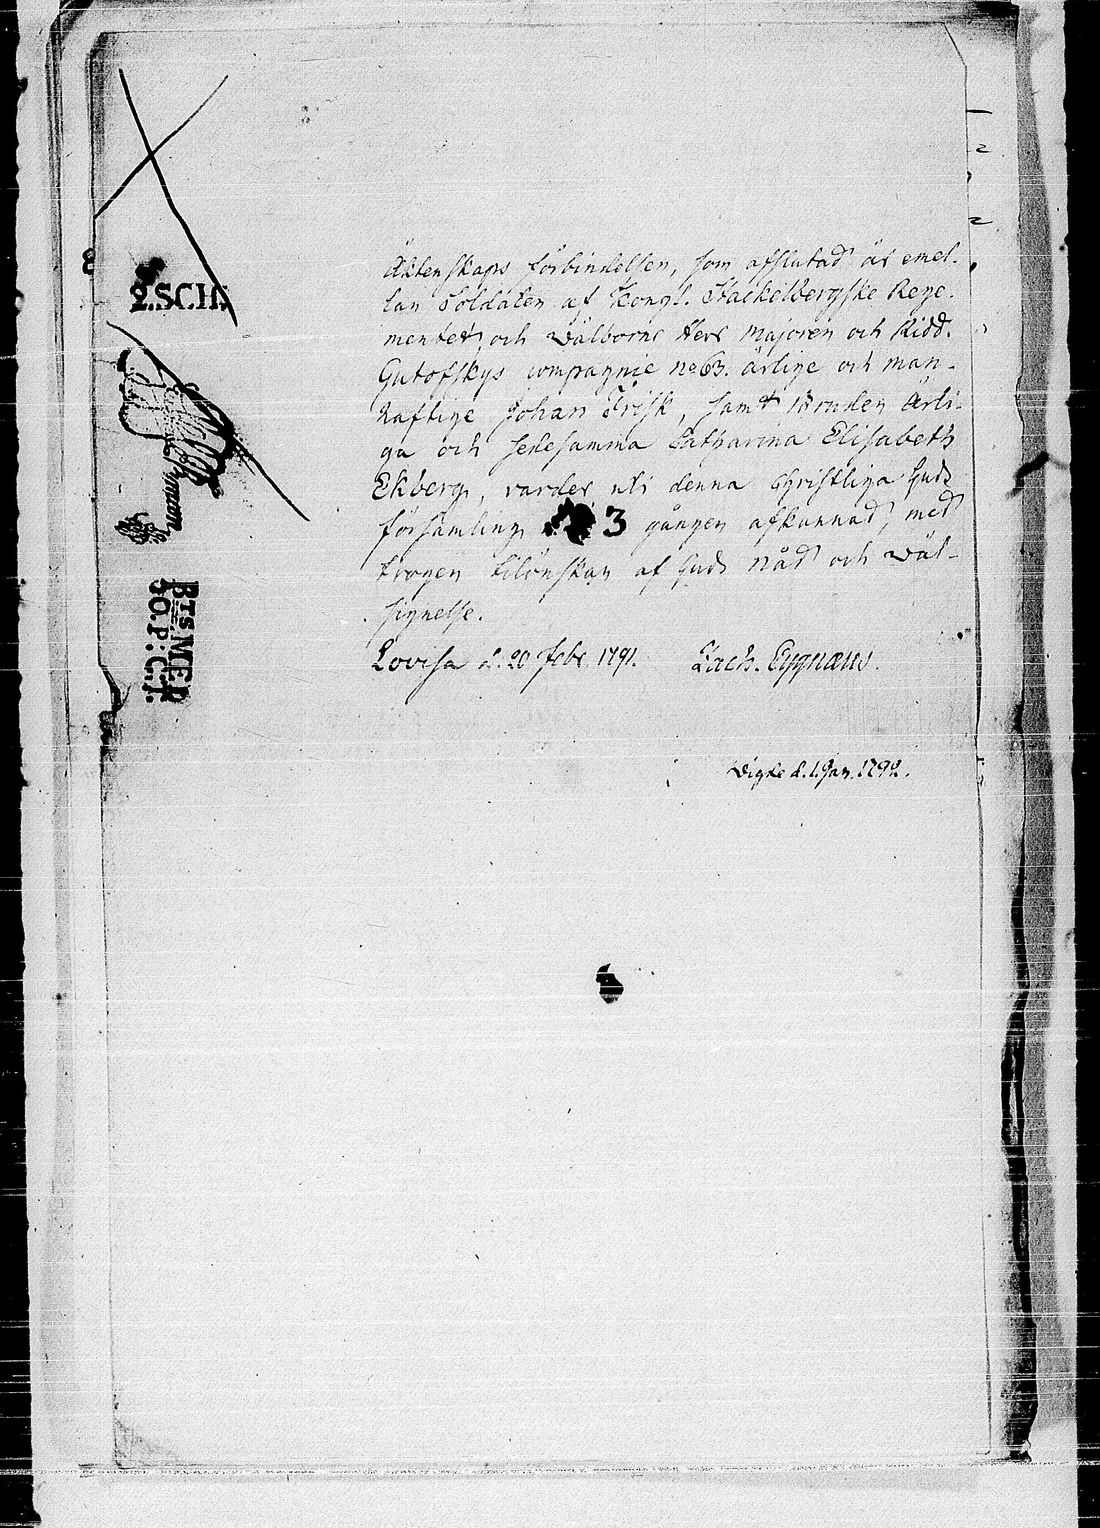 2.SCH.
BTS MED
30.P:C.T.
Äktenskaps förbindelsen, som afslutad är emel-
lan Soldaten af Kongl. Stackelbergske Rege-
mentet, och Wälborne Herr Majoren och Ridd.
Gutofskys compagnie No 63. ärlige och man-
haftige Johan Frisk, samt bruden ärli-
ga och sedesamma Catharina Elisabeth
Ekberg, varder uti denna Christliga Guds
församling 3 gången afkunnad, med
trogen tilönskan af Guds nåd och wäl-
signelse.
Lovisa d. 20 Febr. 1791. Zach. Cygnæus.
Wigde d. 1. Jan. 1792.